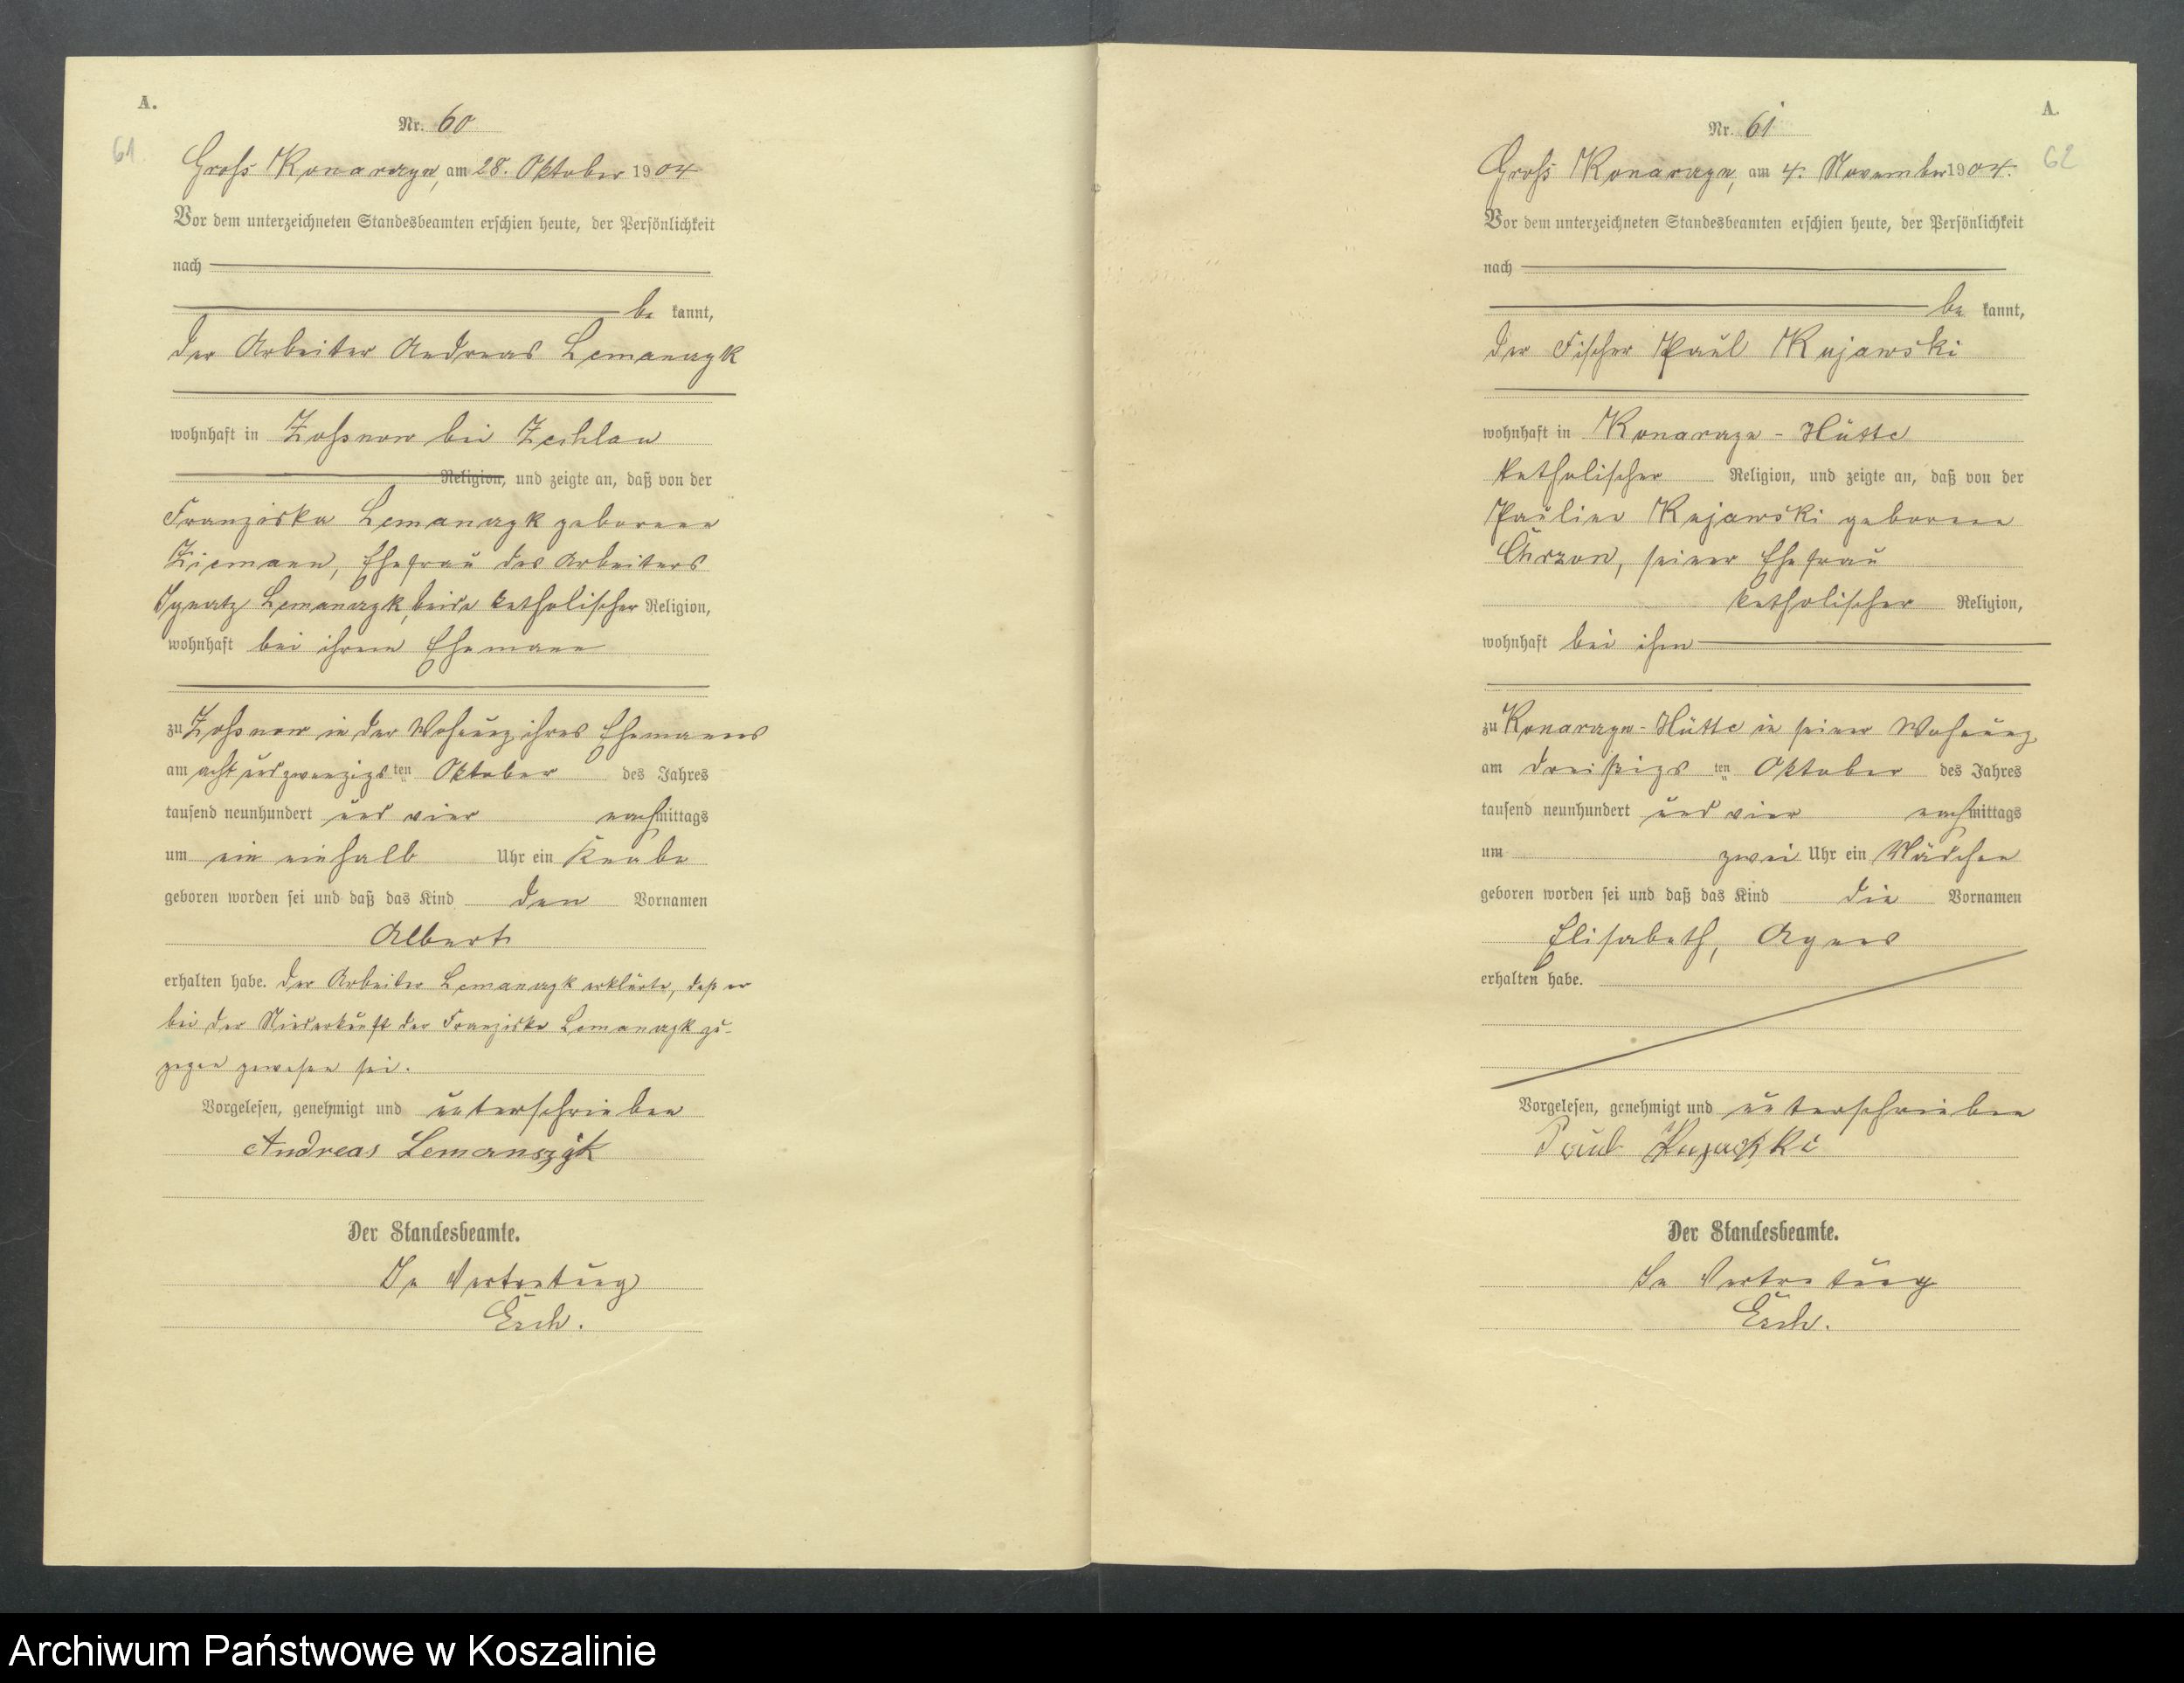 A.
61.
Nr. 60
Groß Konarczyn, am 28. Oktober 1904
Vor dem unterzeichneten Standesbeamten erschien heute, der Persönlichkeit
nach
be kannt,
der Arbeiter Andreas Lemanczyk
wohnhaft in Zoßnow bei Zechlau
Religion, und zeigte an, daß von der
Franziska Lemanczyk geborene
Ziemann, Ehefrau des Arbeiters
Ignatz Lemanczyk, beide katholischer Religion,
wohnhaft bei ihrem Ehemann
zu Zoßnow in der Wohnung ihres Ehemannes
am acht und zwanzigsten Oktober des Jahres
tausend neunhundert und vier nachmittags
um ein einhalb Uhr ein Knabe
geboren worden sei und daß das Kind den Vornamen
Albert
erhalten habe. Der Arbeiter Lemanczyk erklärte, daß er
bei der Niederkunft der Franziska Lemanczyk zu-
gegen gewesen sei.
Vorgelesen, genehmigt und unterschrieben
Andreas Lemanszyk
Der Standesbeamte.
In Vertretung
A.
62
Nr. 61
Groß Konarczyn, am 4. November 1904.
Vor dem unterzeichneten Standesbeamten erschien heute, der Persönlichkeit
nach
be kannt,
der Fischer Paul Kujawski
wohnhaft in Konarczyn-Hütte
katholischer Religion, und zeigte an, daß von der
Pauline Kujawski geborene
seiner Ehefrau
katholischer Religion,
wohnhaft bei ihm
zu Konarczyn-Hütte in seiner Wohnung
am dreißigsten Oktober des Jahres
tausend neunhundert und vier nachmittags
um zwei Uhr ein Mädchen
geboren worden sei und daß das Kind die Vornamen
Elisabeth, Agnes
erhalten habe.
Vorgelesen, genehmigt und unterschrieben
Paul
Der Standesbeamte.
In Vertretung
Archiwum Państwowe w Koszalinie